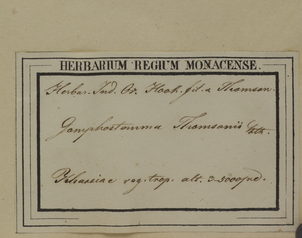 HERBARIUM REGIUM MONACENSE.
Herbar. Ind. Or. Hook. fil. & Thomson.
Gomphostemma Thomsonii Bth.
Khassiae reg. trop. alt. 3-5000 ped.